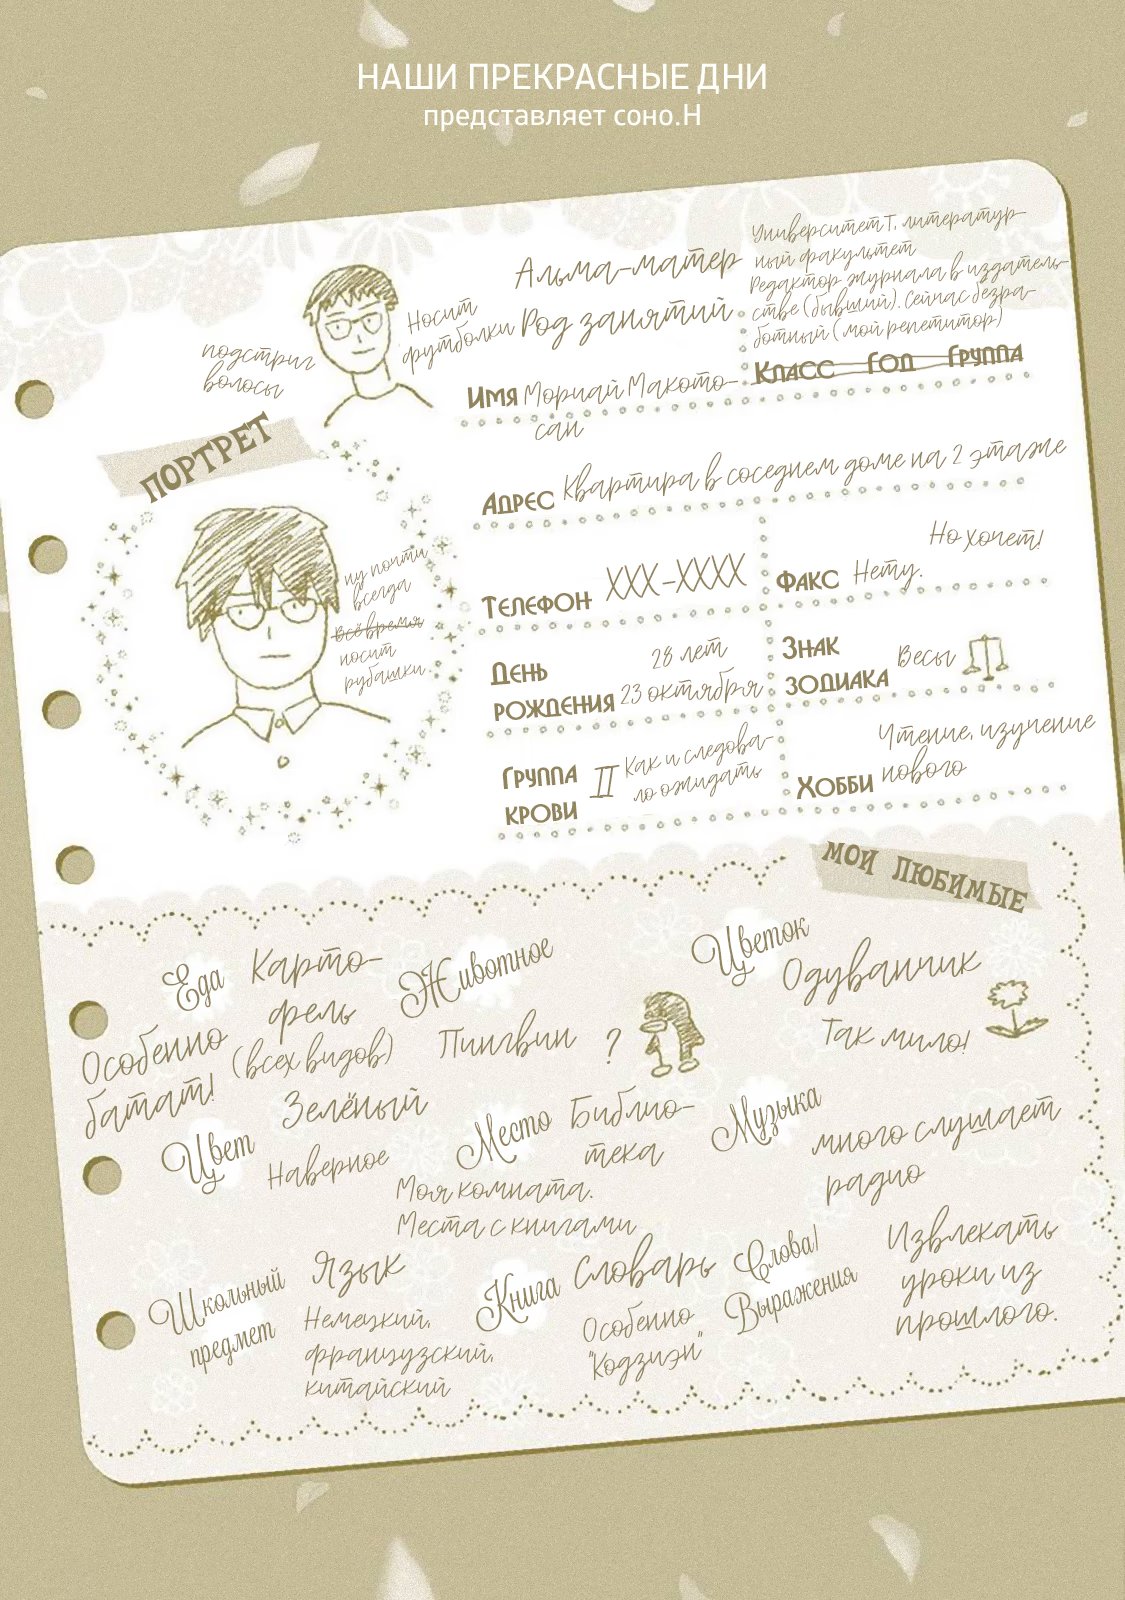 НАШИ ПРЕКРАСНЫЕ ДНИ
представляет соно.Н
Альма-матер
Университет Т, литератур-
ный факультет
Род занятий
Редактор журнала в издатель-
стве (бывший). Сейчас безра-
ботный (мой репетитор)
Носит
футболки
подстриг
волосы
Имя Мориай Макото-
сан
Класс Год Группа
ПОРТРЕТ
ну почти
всегда
всё время
носит
рубашки.
Адрес Квартира в соседнем доме на 2 этаже
Телефон XXX-XXXX
Факс Нету.
Но хочет!
День
рождения
28 лет
23 октября
Знак
зодиака
Весы
Группа
крови
II
Как и следова-
ло ожидать
Хобби
Чтение, изучение
нового
МОИ ЛЮБИМЫЕ
Еда
Карто-
фель
(всех видов)
Особенно
батат!
Животное
Пингвин ?
Цветок
Одуванчик
Так мило!
Цвет
Зелёный
Наверное
Место
Библио-
тека
Моя комната.
Места с книгами
Музыка
много слушает
радио
Школьный
предмет
Язык
Немецкий,
французский,
китайский
Книга
Словарь
Особенно
"Кодзиэн"
Слова/
Выражения
Извлекать
уроки из
прошлого.